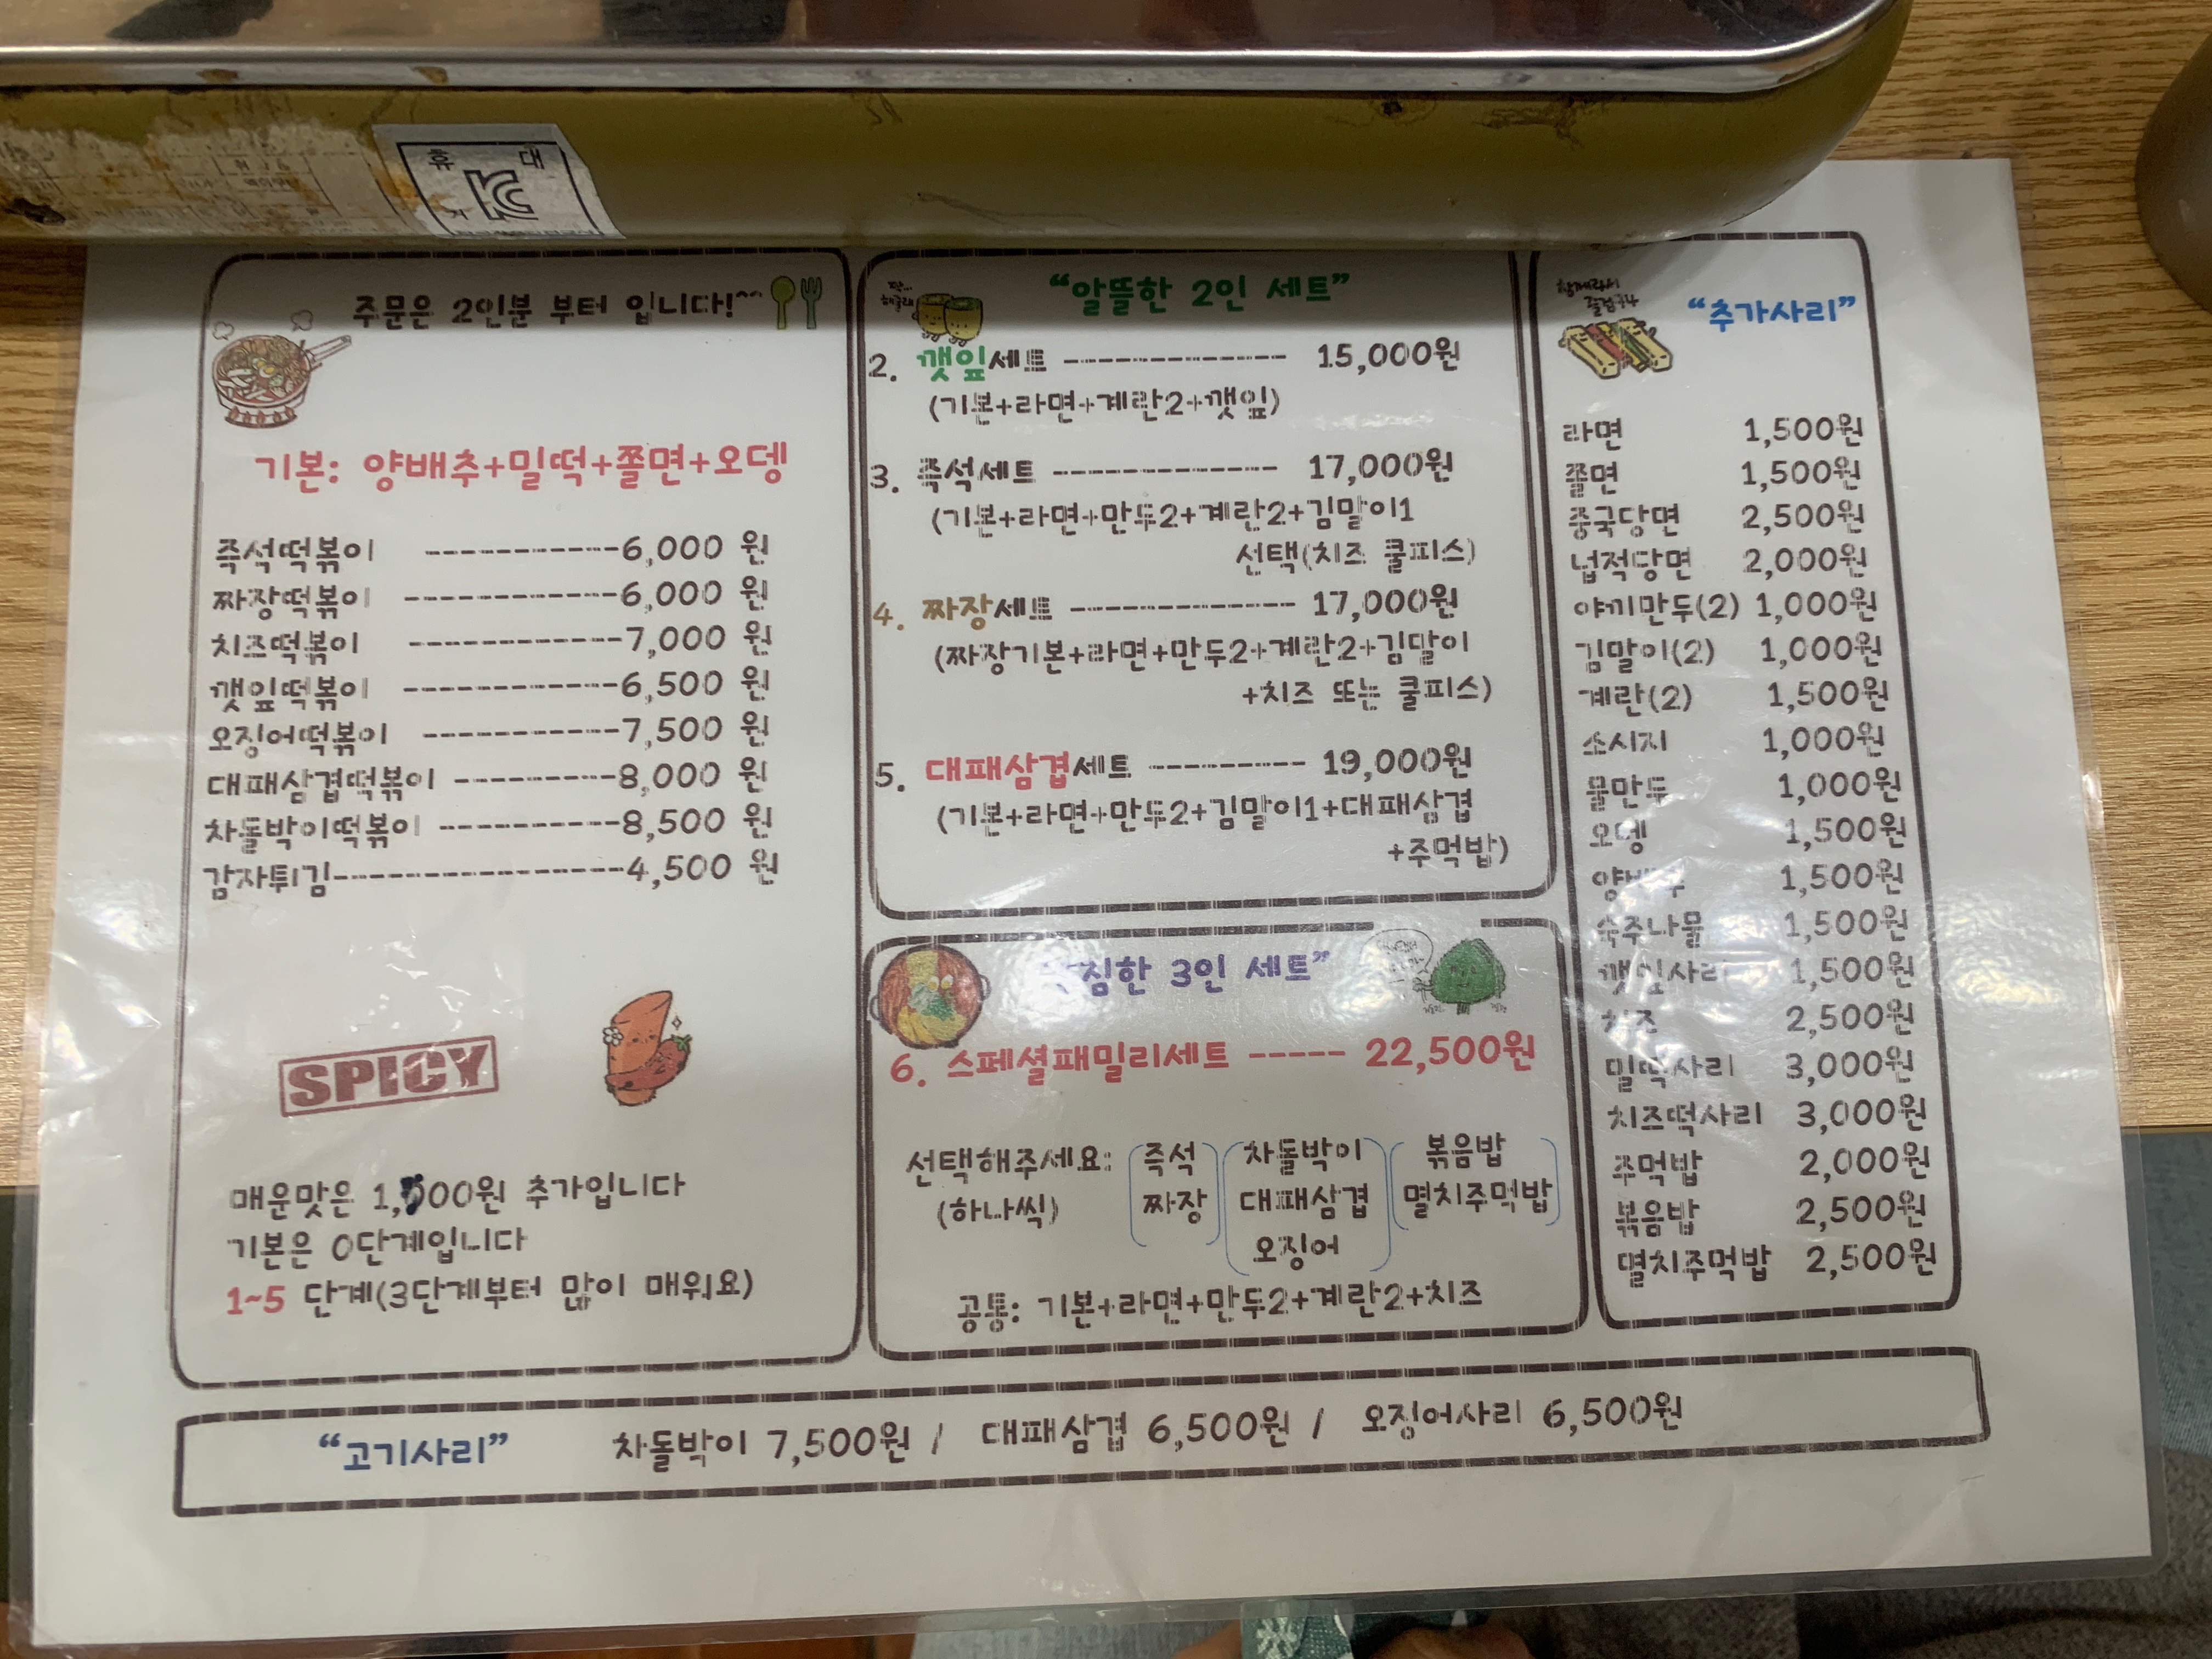 휴 대
주문은 2인분 부터 입니다!^^
기본: 양배추+밀떡+쫄면+오뎅
즉석떡볶이 -----------6,000 원
짜장떡볶이 ------------6,000 원
치즈떡볶이 ------------7,000 원
깻잎떡볶이 ------------6,500 원
오징어떡볶이 -----------7,500 원
대패삼겹떡볶이 ---------8,000 원
차돌박이떡볶이 ----------8,500 원
감자튀김----------------4,500 원
SPICY
매운맛은 원 추가입니다
기본은 0단계입니다
1~5 단계(3단계부터 많이 매워요)
“알뜰한 2인 세트”
2. 깻잎세트 ------------- 15,000원
(기본+라면+계란2+깻잎)
3. 즉석세트 ------------- 17,000원
(기본+라면+만두2+계란2+김말이1
선택(치즈 쿨피스)
4. 짜장세트 ------------- 17,000원
(짜장기본+라면+만두2+계란2+김말이
+치즈 또는 쿨피스)
5. 대패삼겹세트 --------- 19,000원
(기본+라면+만두2+김말이1+대패삼겹
+주먹밥)
3인 세트”
6. 스페셜패밀리세트 ----- 22,500원
선택해주세요: 즉석 차돌박이 볶음밥
(하나씩) 짜장 대패삼겹 멸치주먹밥
오징어
공통: 기본+라면+만두2+계란2+치즈
“추가사리”
라면 1,500원
쫄면 1,500원
중국당면 2,500원
넙적당면 2,000원
야끼만두(2) 1,000원
김말이(2) 1,000원
계란(2) 1,500원
소시지 1,000원
물만두 1,000원
오뎅 1,500원
양배추 1,500원
숙주나물 1,500원
깻잎사리 1,500원
치즈 2,500원
밀떡사리 3,000원
치즈떡사리 3,000원
주먹밥 2,000원
볶음밥 2,500원
멸치주먹밥 2,500원
“고기사리” 차돌박이 7,500원 / 대패삼겹 6,500원 / 오징어사리 6,500원